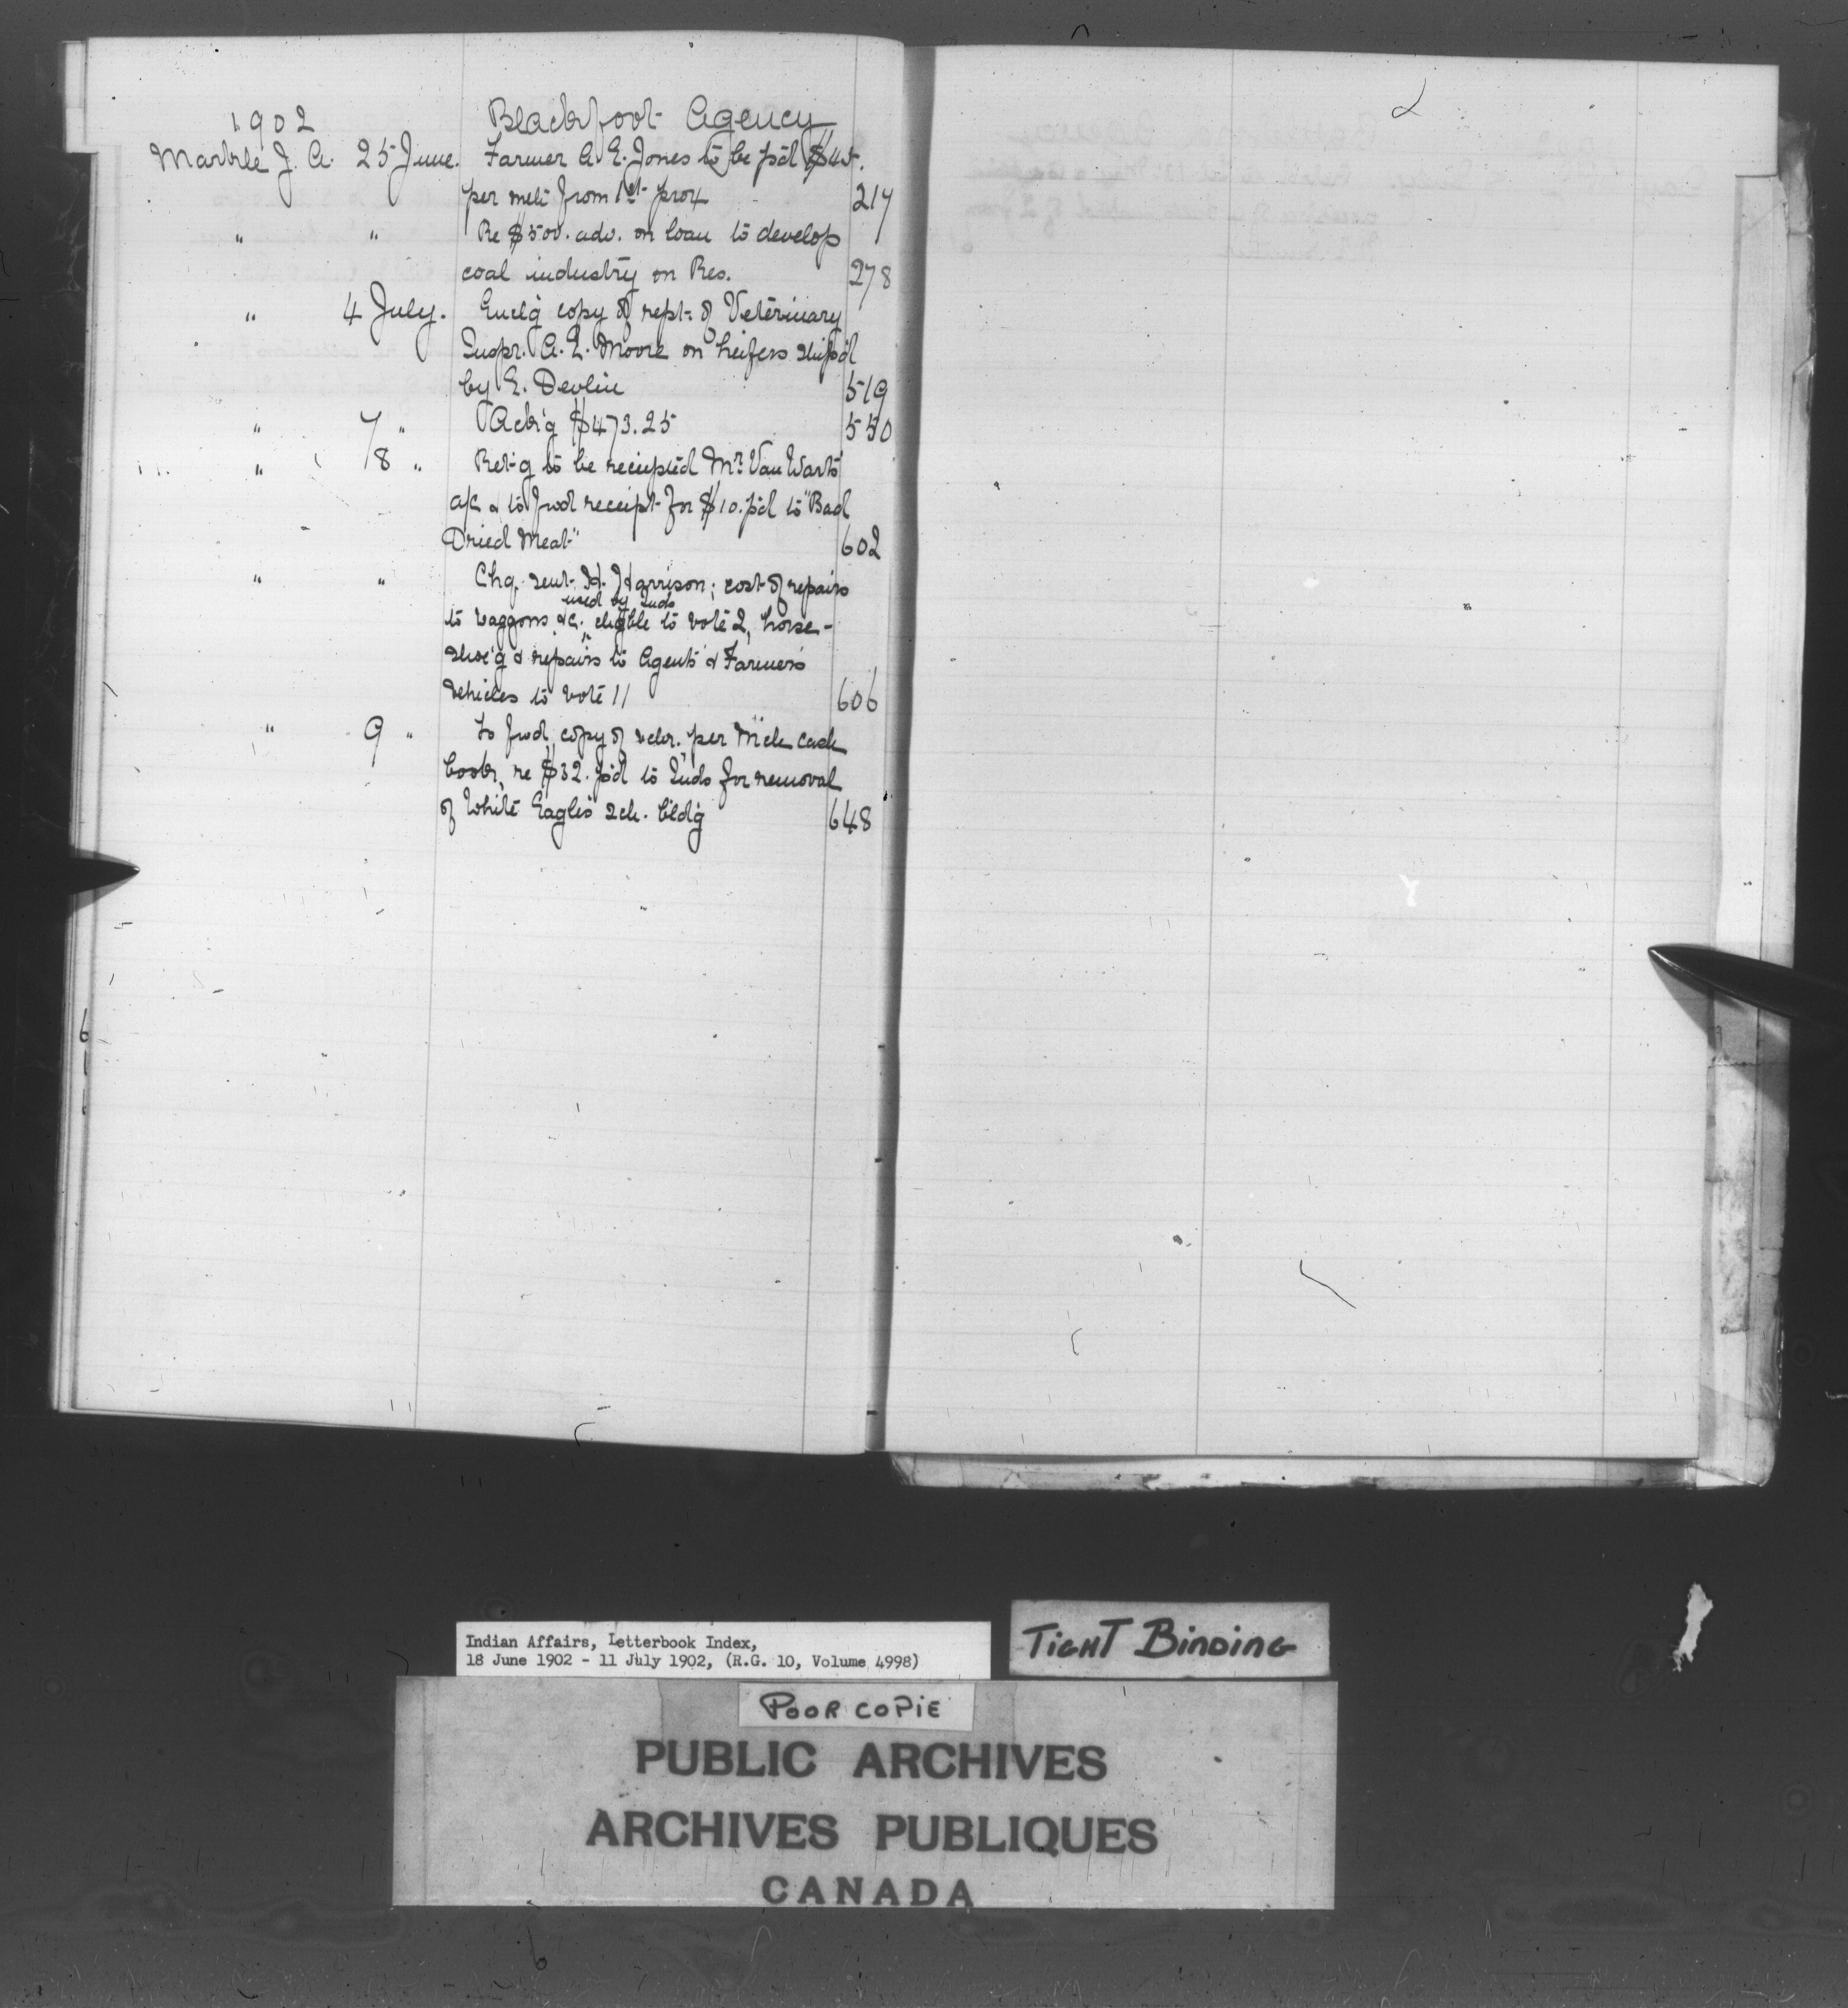 1902 Blackfoot Agency
Markle J. A. 25 June. Farmer A. E. Jones to be p'd $45.
per mth from 1st prox 217
" " Re $500. adv. on loan to develop
coal industry on Res. 278
" 4 July. Encl'g copy of rept. of Veterinary
Inspr. A. E. Moore on heifers ship'd
by E. Devlin 519
" 7 " Ack'g $473.25 550
" 8 " Ret'g to be receipted Mr. Van Wart's
a/c & to fwd receipt for $10. p'd to "Bad
Dried Meat" 602
" " Chq. sent H. Harrison; cost of repairs
used by Inds
to waggons &c. eligible to vote 2, horse-
shoe'g & repairs to Agent's & Farmers'
vehicles to vote 11 606
" 9 " To fwd copy of vchr. per Mch cash
book, re $32. p'd to Inds for removal
of White Eagle's sch. bldg 648
Indian Affairs, Letterbook Index,
18 June 1902 - 11 July 1902, (R.G. 10, Volume 4998)
TIGHT BINDING
POOR COPIE
PUBLIC ARCHIVES
ARCHIVES PUBLIQUES
CANADA